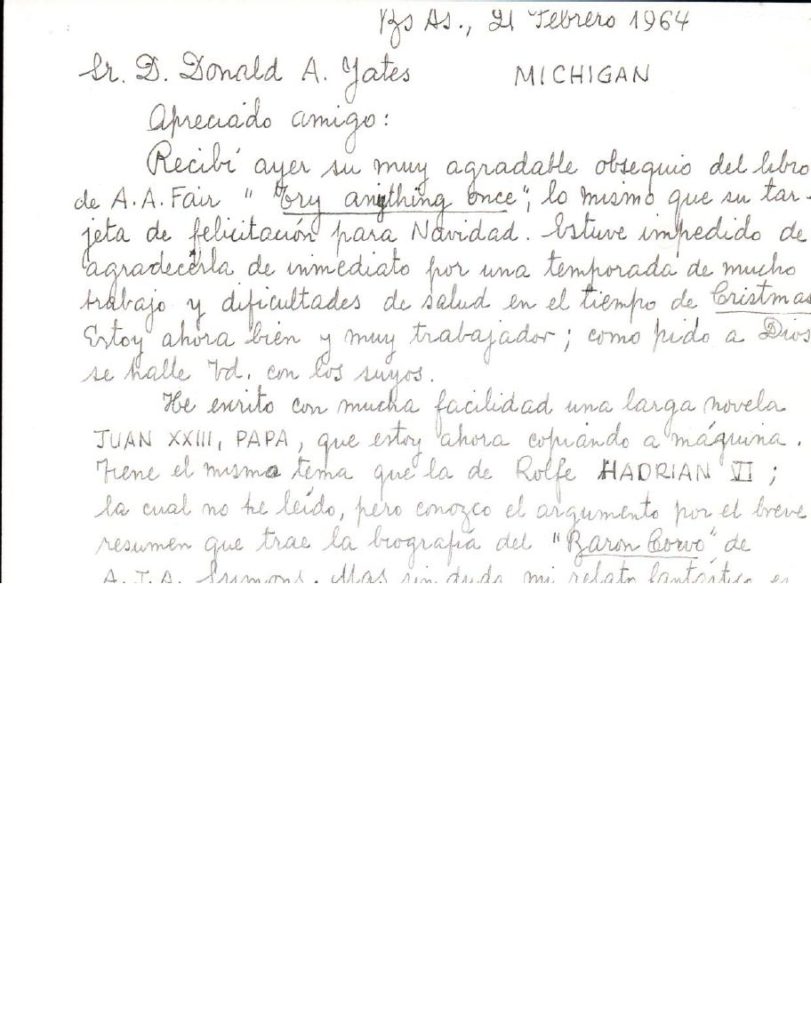 Bs As., 21 Febrero 1964
Sr. D. Donald A. Yates MICHIGAN
Apreciado amigo:
Recibí ayer su muy agradable obsequio del libro
de A. A. Fair "Try anything once"; lo mismo que su tar-
jeta de felicitación para Navidad. Estuve impedido de
agradecérla de inmediato por una temporada de mucho
trabajo y dificultades de salud en el tiempo de Cristmas
Estoy ahora bién y muy trabajador; como pido a Dios
se halle Vd. con los suyos.
He esrito con mucha facilidad una larga novela
JUAN XXIII, PAPA, que estoy ahora copiando a máquina.
Tiene el mismo tema que la de Rolfe HADRIAN VI;
la cual no he leído, pero conozco el argumento por el breve
resumen que trae la biografía del "Baron Corvo" de
A. J. A. Symons. Mas sin duda mi relato fantástico es